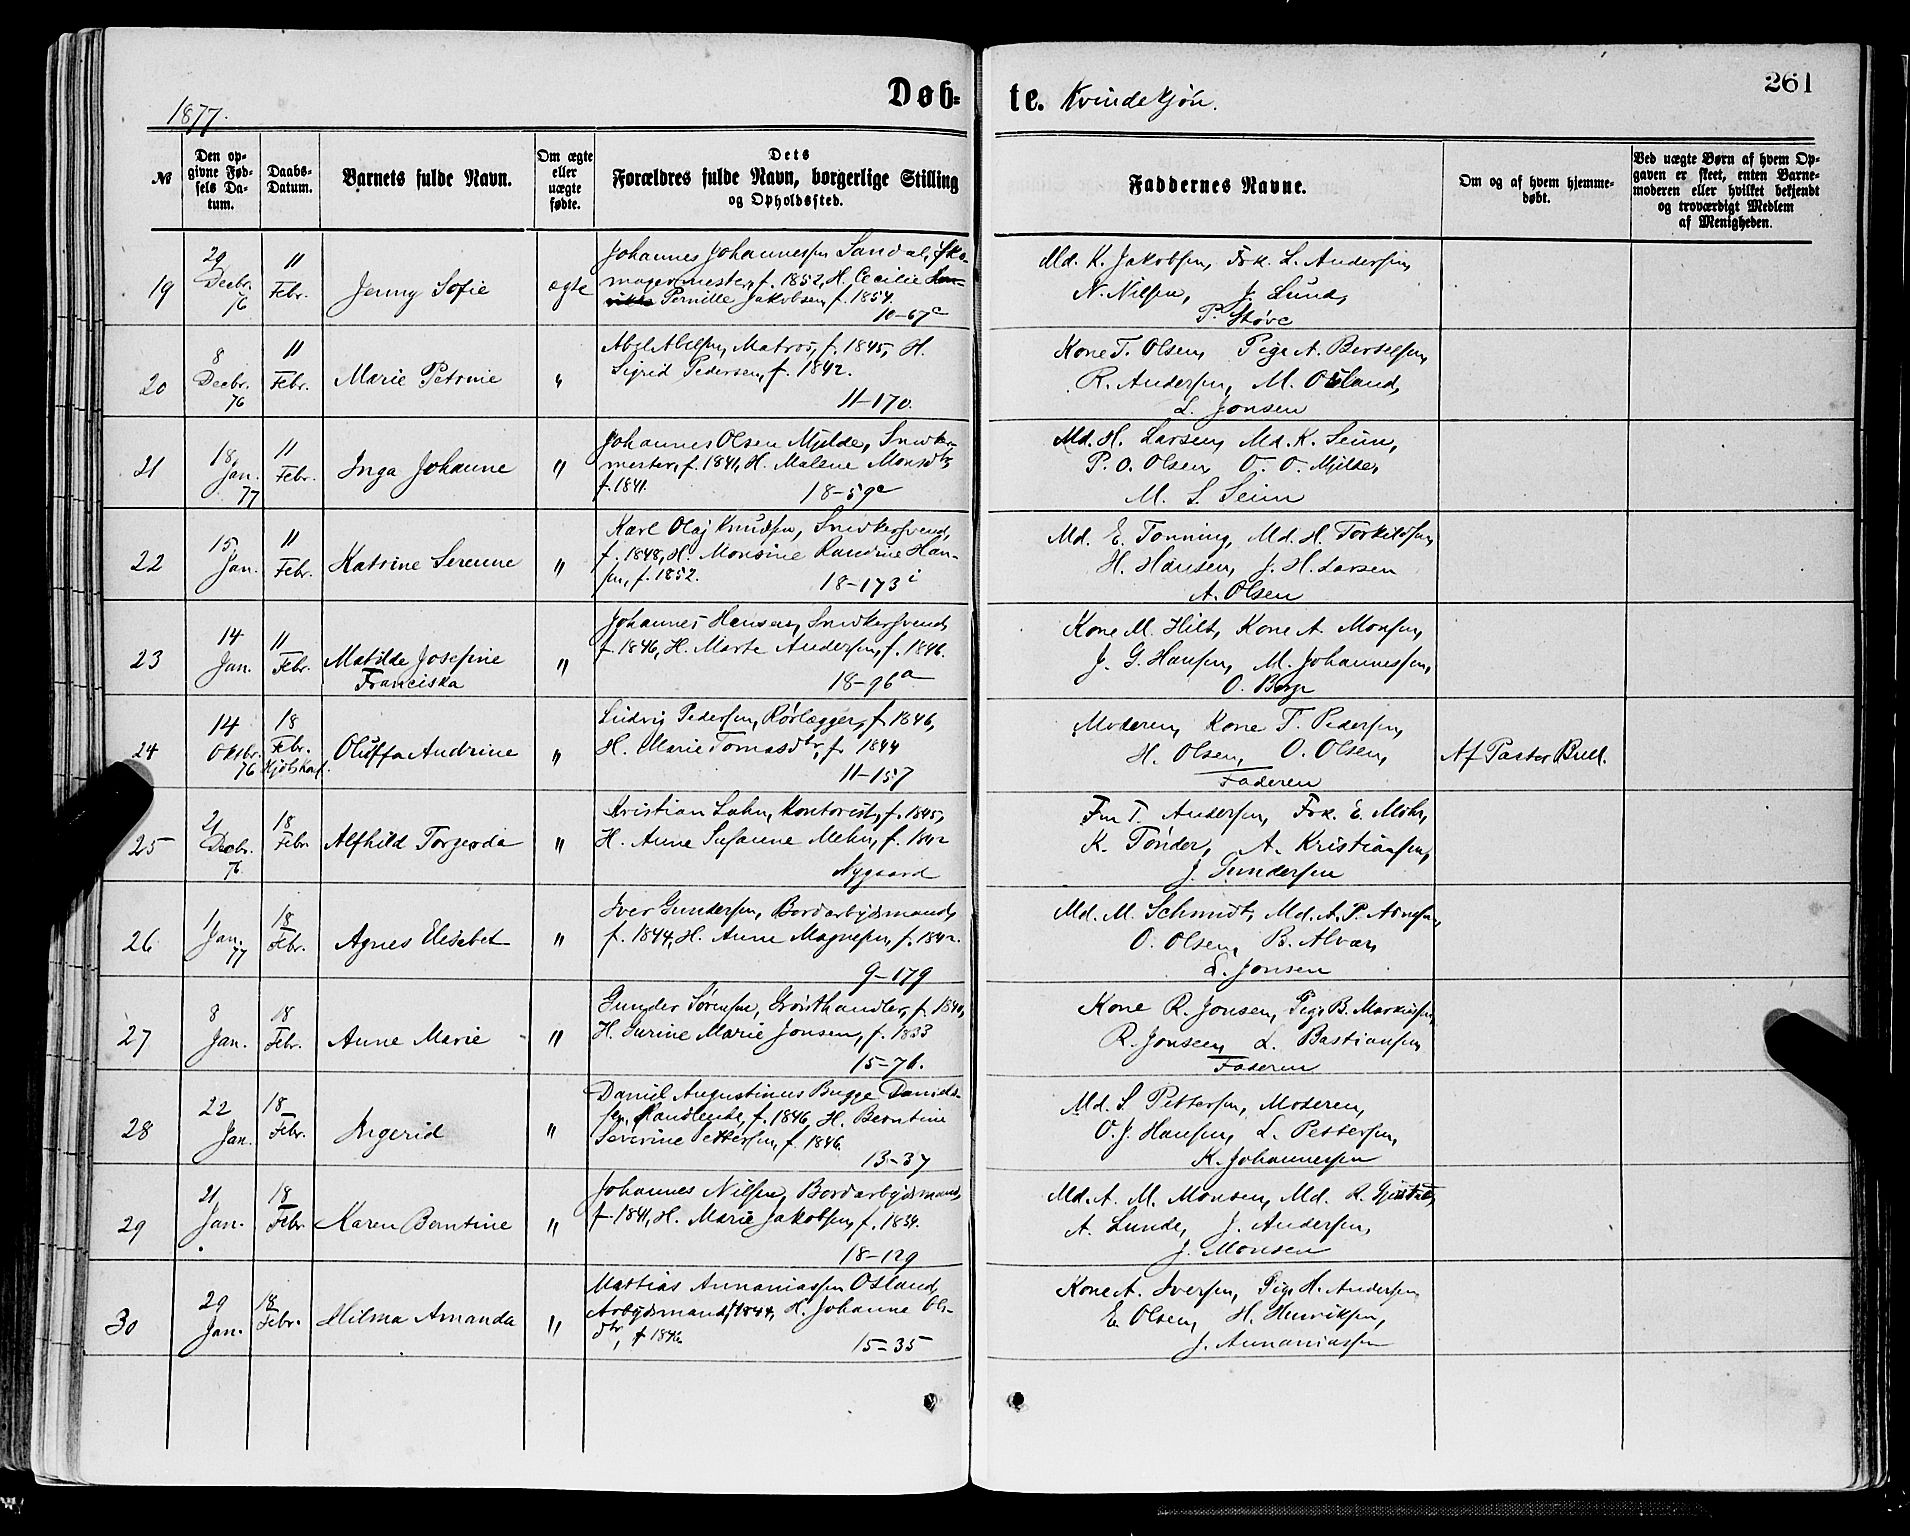 261
1877.
Døb-te. Kvindekjøn.
№
Den op-
givne Fød-
sels Da-
tum.
Daabs-
Datum.
Barnets fulde Navn.
Om ægte
eller
uægte
fødte.
Dets
Forældres fulde Navn, borgerlige Stilling
og Opholdssted.
Faddernes Navne.
Om og af hvem hjemme-
døbt.
Ved uægte Børn af hvem Op-
gaven er skeet, enten Barne-
moderen eller hvilket bekjendt
og troværdigt Medlem
af Menigheden.
19
29
Decbr.
76
11
Febr.
Jenny Sofie
ægte
Johannes Johannessen Sandal, Sko-
magermester, f. 1852, H. Cecilie
Pernille Jakobsen, f. 1854.
10-67c
Md. K. Jakobsen, Frk. L. Andersen,
N. Nilsen, J. Lund,
P. Støve
20
8
Decbr.
76
11
Febr.
Marie Petrine
"
Abel Abelsen, Matros, f. 1845, H.
Sigrid Pedersen, f. 1842.
11-170.
Kone T. Olsen, Pige A. Bertelsen,
R. Andersen, M. Osland,
L. Jonsen
21
18
Jan.
77
11
Febr.
Inga Johanne
"
Johannes Olsen Mjelde, Snedker-
mester, f. 1841, H. Malene Monsdtr,
f. 1841.
18-59c
Md. H. Larsen, Md. K. Seim,
P. O. Olsen, O. O. Mjelde,
M. S. Seim
22
15
Jan.
11
Febr.
Katrine Serenne
"
Karl Olaj Knudsen, Snedkersvend,
f. 1848, H. Monsine Randine Han-
sen, f. 1852.
18-173i
Md. E. Tonning, Md. H. Torkildsen,
H. Hansen, J. H. Larsen
A. Olsen
23
14
Jan.
11
Febr.
Matilde Josefine
Franciska
"
Johannes Hansen, Snedkersvend,
f. 1846, H. Marte Andersen, f. 1846.
18-96a
Kone M. Hilt, Kone A. Monsen,
J. G. Hansen, M. Johannessen,
O. Berge
24
14
Oktbr.
76
18
Febr.
Oluffa Andrine
"
Ludvig Pedersen, Rørlægger, f. 1846,
H. Marie Tomasdtr, f. 1844
11-157
Moderen, Kone T. Pedersen,
H. Olsen, O. Olsen,
Faderen
Af Pastor Bull.
25
21
Decbr.
76
18
Febr.
Alfhild Torgerda
"
Kristian Lahn, Kontorist, f. 1845,
H. Anne Susanne Mehn, f. 1842
Nygaard
Fru T. Andersen, Frk. E. Mohr,
K. Tønder, A. Kristiansen,
J. Gundersen
26
1
Jan.
77
18
Febr.
Agnes Elisebet
"
Iver Gundersen, Bordarbejdsmand,
f. 1844, H. Anne Magnesen, f. 1842.
9-179
Md. M. Schmidt, Md. A. P. Arnesen,
O. Olsen, B. Alver,
L. Jonsen
27
8
Jan.
18
Febr.
Anne Marie
"
Gunder Sørensen, Grønthandler, f. 1840,
H. Gurine Marie Jonsen, f. 1833
15-76.
Kone R. Jonsen, Pige B. Markusen,
R. Jonsen, L. Bastiansen,
Faderen
28
22
Jan.
18
Febr.
Ingerid
"
Daniel Augustinus Bugge Daniels-
sen, Handlende, f. 1846, H. Berntine
Severine Pettersen, f. 1846.
13-37
Md. S. Pettersen, Moderen,
O. J. Hansen, L. Pettersen,
K. Johannessen
29
21
Jan.
18
Febr
Karen Berntine
"
Johannes Nilsen, Bordarbejdsmand,
f. 1841, H. Marie Jakobsen, f. 1834.
18-129
Md. A. M. Monsen, Md. R.
A. Lunde, J. Andersen,
J. Monsen
30
29
Jan.
18
Febr.
Hilma Amanda
"
Mattias Annaniassen Osland,
Arbejdsmand, f. 1844, H. Johanne Ols-
dtr, f. 1846.
15-35
Kone A. Iversen, Pige H. Andersen,
E. Olsen, H. Henriksen,
J. Annaniassen